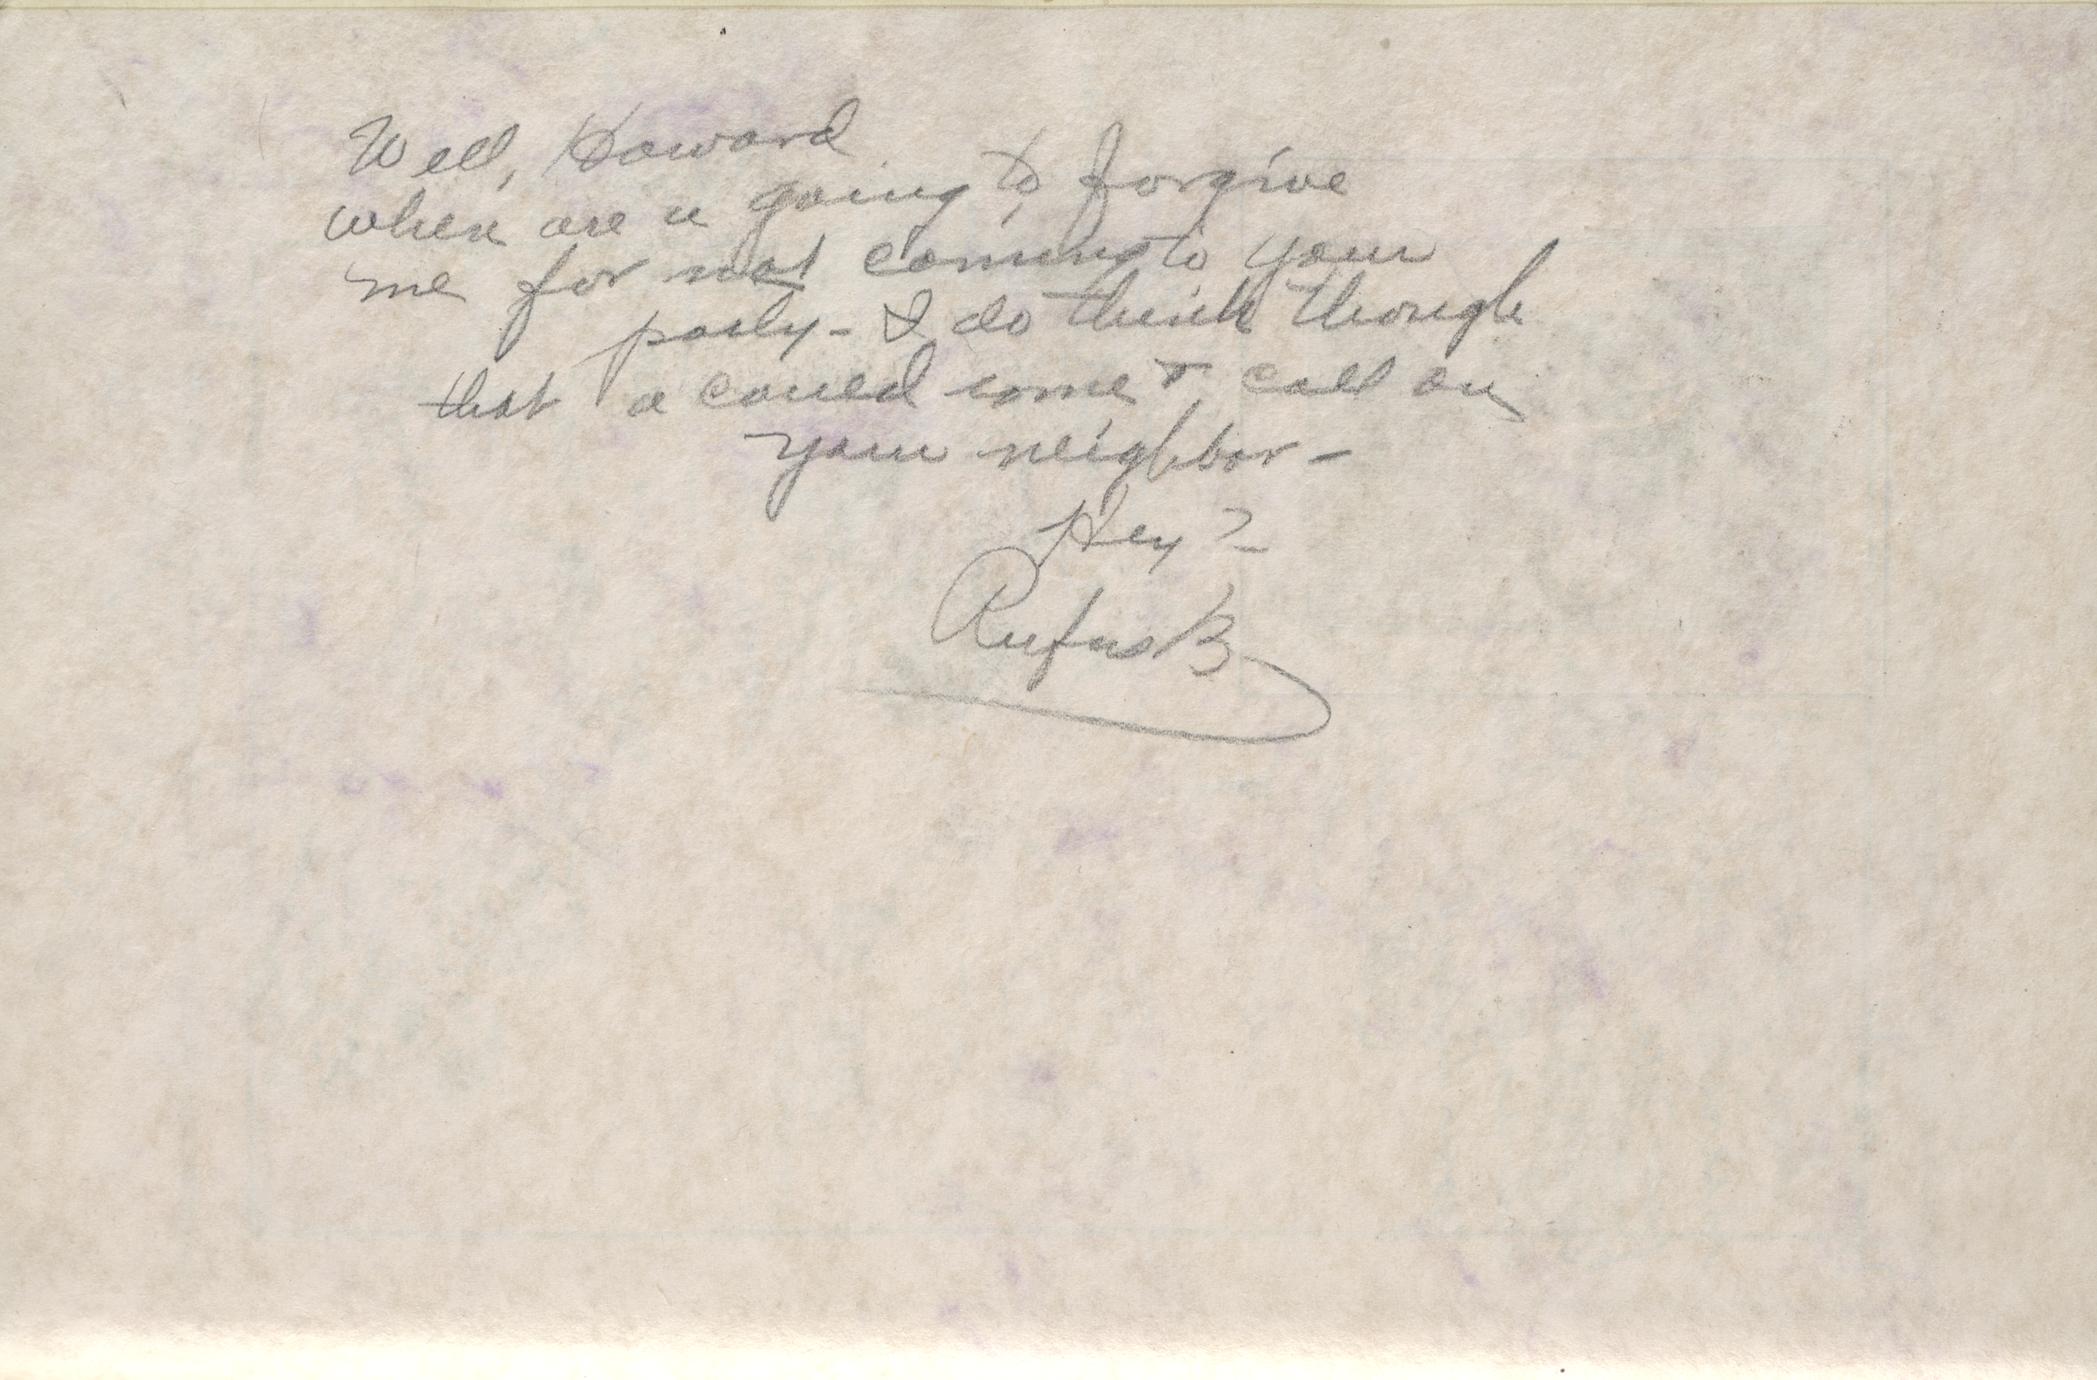 Well, Howard
when are u going to forgive
me for not coming to your
party - I do think though
that u could come & call on
your neighbor -
Hey?
Rufus B